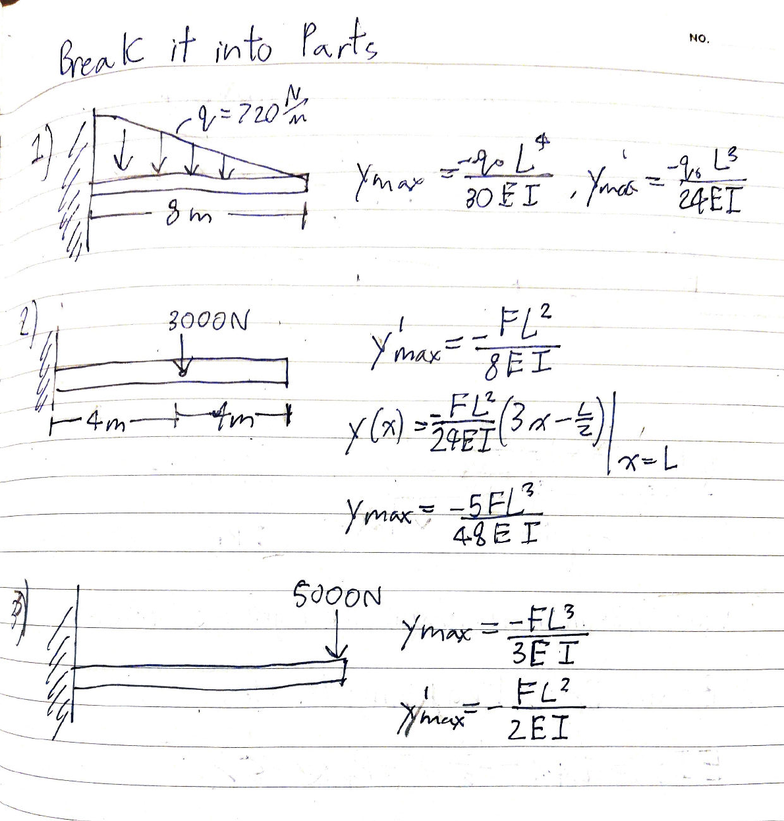 Break it into Parts
NO.
1)
q = 720 N/m
8 m
Ymax = -q₀ L⁴ / 30 E I , Y'max = -q₀ L³ / 24 E I
2)
3000N
4m 4m
Y'max = - FL² / 8 E I
Y(x) = -FL² / 24EI (3x - L/2) | x = L
Ymax = -5FL³ / 48 E I
3)
5000N
Ymax = -FL³ / 3 E I
Y'max = - FL² / 2 E I